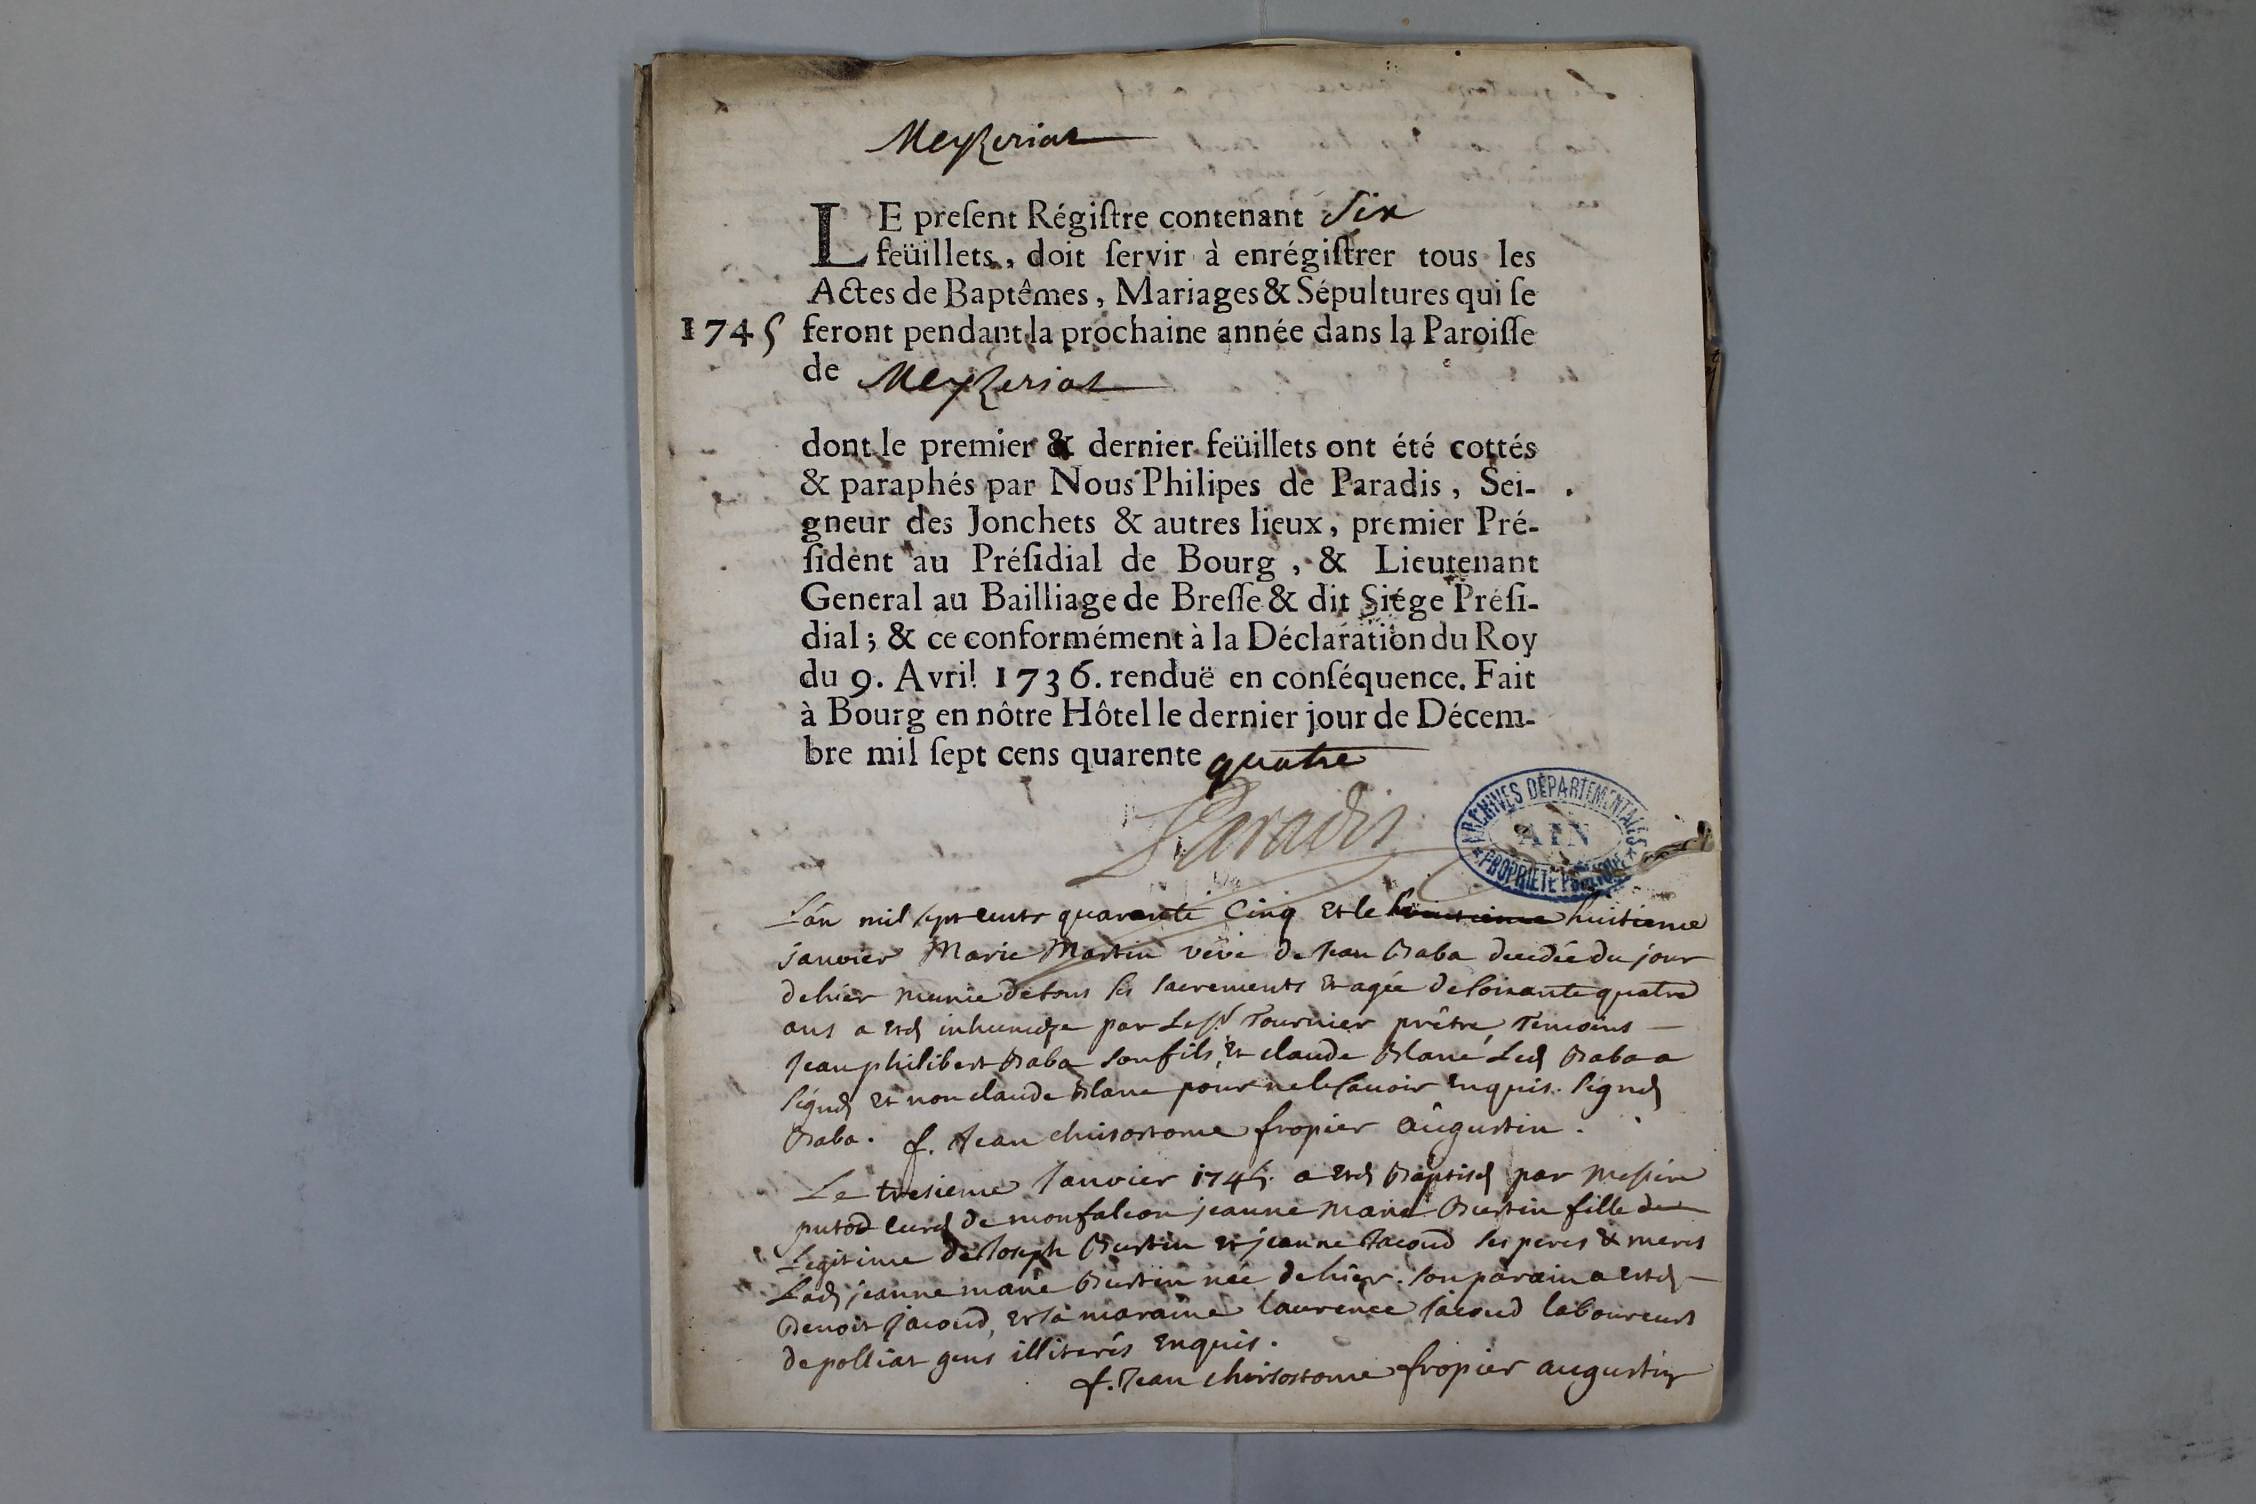 Meyzeriat
LE preſent Régiſtre contenant Six
feüillets, doit ſervir à enrégiſtrer tous les
Actes de Baptêmes, Mariages & Sépultures qui ſe
1745 feront pendant la prochaine année dans la Paroiſſe
de Meyzeriat
dont le premier & dernier feüillets ont été cottés
& paraphés par Nous Philipes de Paradis, Sei-
gneur des Jonchets & autres lieux, premier Pré-
ſident au Préſidial de Bourg, & Lieutenant
General au Bailliage de Breſſe & dit Siége Préſi-
dial ; & ce conformément à la Déclaration du Roy
du 9. Avril 1736. renduë en conſéquence. Fait
à Bourg en nôtre Hôtel le dernier jour de Décem-
bre mil ſept cens quarente quatre
Paradis
ARCHIVES DÉPARTEMENTALES
AIN
PROPRIÉTÉ PUBLIQUE
L'an mil sept cents quarante Cinq et le huitieme
janvier Marie Martin veve de Jean Baba decedée du jour
dehier munie de tous les sacrements et agée de soixante quatre
ans a eté inhumée par Le Sr. Tournier prêtre, Temoins
Jean philibert Baba son fils, et claude Blanc Led Baba a
signé et non claude Blanc pour ne le savoir enquis. signé
Baba. f. Jean chrisostome fropier augustin.
Le tresieme Janvier 1745. a eté Baptisé par Messire
putod curé de monfalcon jeanne Marie Burtin fille
Legitime de Joseph Burtin et jeanne Jacoud ses peres & meres
Lad jeanne marie Burtin née dehier. son parain a eté
Benoit Jacoud, et sa maraine laurence Jacoud laboureurs
de polliat gens illiterés enquis.
f. Jean chrisostome fropier augustin